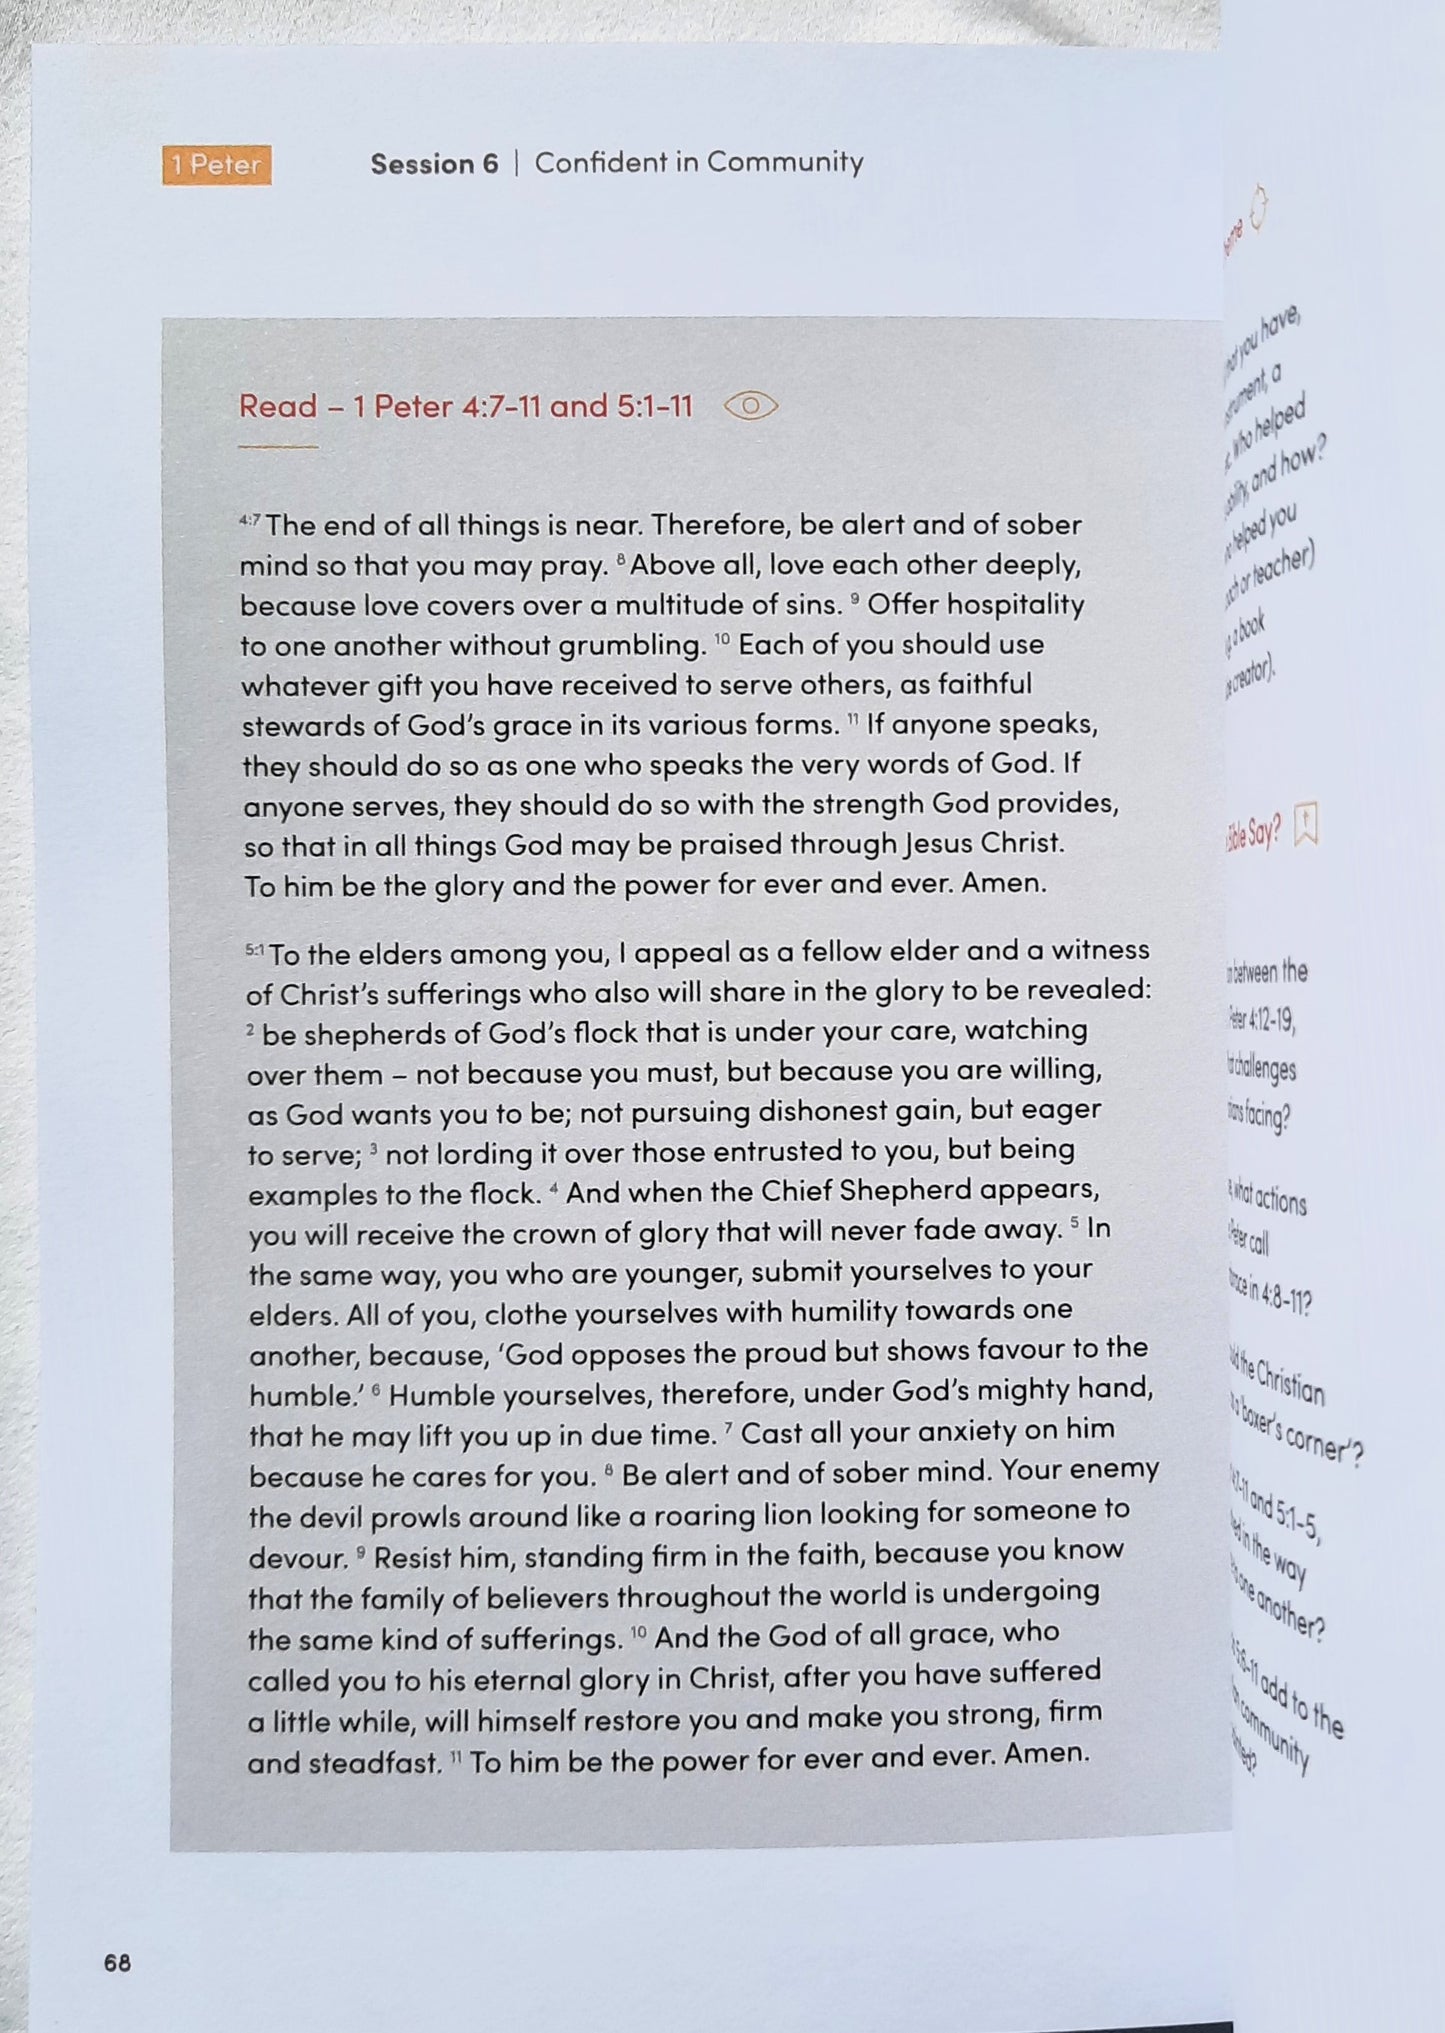 1 Peter
Session 6 | Confident in Community
Read – 1 Peter 4:7–11 and 5:1–11
4:7 The end of all things is near. Therefore, be alert and of sober
mind so that you may pray. 8 Above all, love each other deeply,
because love covers over a multitude of sins. 9 Offer hospitality
to one another without grumbling. 10 Each of you should use
whatever gift you have received to serve others, as faithful
stewards of God’s grace in its various forms. 11 If anyone speaks,
they should do so as one who speaks the very words of God. If
anyone serves, they should do so with the strength God provides,
so that in all things God may be praised through Jesus Christ.
To him be the glory and the power for ever and ever. Amen.
5:1 To the elders among you, I appeal as a fellow elder and a witness
of Christ’s sufferings who also will share in the glory to be revealed:
2 be shepherds of God’s flock that is under your care, watching
over them – not because you must, but because you are willing,
as God wants you to be; not pursuing dishonest gain, but eager
to serve; 3 not lording it over those entrusted to you, but being
examples to the flock. 4 And when the Chief Shepherd appears,
you will receive the crown of glory that will never fade away. 5 In
the same way, you who are younger, submit yourselves to your
elders. All of you, clothe yourselves with humility towards one
another, because, ‘God opposes the proud but shows favour to the
humble.’ 6 Humble yourselves, therefore, under God’s mighty hand,
that he may lift you up in due time. 7 Cast all your anxiety on him
because he cares for you. 8 Be alert and of sober mind. Your enemy
the devil prowls around like a roaring lion looking for someone to
devour. 9 Resist him, standing firm in the faith, because you know
that the family of believers throughout the world is undergoing
the same kind of sufferings. 10 And the God of all grace, who
called you to his eternal glory in Christ, after you have suffered
a little while, will himself restore you and make you strong, firm
and steadfast. 11 To him be the power for ever and ever. Amen.
68
you have,
a
Who helped
and how?
helped you
or teacher)
a book
creator).
Say?
between the
4:12–19,
challenges
facing?
what actions
Peter call
in 4:8–11?
the Christian
‘boxer’s corner’?
and 5:1–5,
in the way
one another?
5:6–11 add to the
community